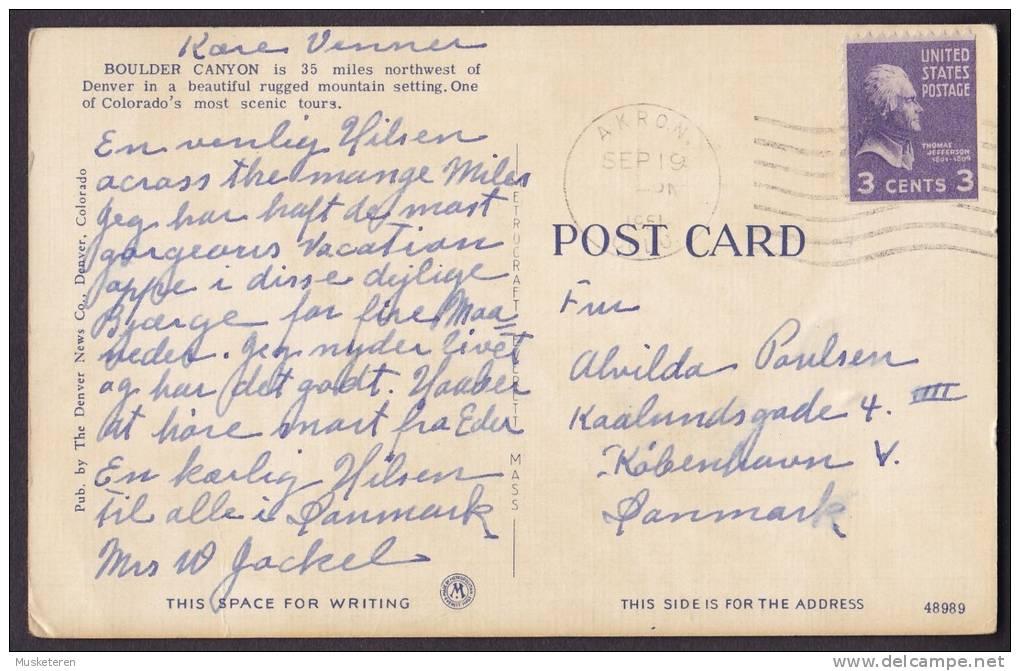 Kære Venner
BOULDER CANYON is 35 miles northwest of
Denver in a beautiful rugged mountain setting. One
of Colorado's most scenic tours.
En venlig Hilsen
across the mange Miles
Jeg har haft de most
gorgeous Vacation
oppe i disse dejlige
Bjærge for fire Maa
neder. Jeg nyder livet
og har det godt. Haaber
at høre snart fra Eder
En kærlig Hilsen
til alle i Danmark
Mrs W Jackel
THIS SPACE FOR WRITING
Pub. by The Denver News Co., Denver, Colorado
EVERETT MASS
M
AKRON,
SEP 19
1951
UNITED
STATES
POSTAGE
THOMAS
JEFFERSON
1801-1809
3 CENTS 3
POST CARD
Fru
Alvilda Poulsen
Kaalundsgade 4. IIII
København V.
Danmark
THIS SIDE IS FOR THE ADDRESS
48989
Musketeren
delcampe.net